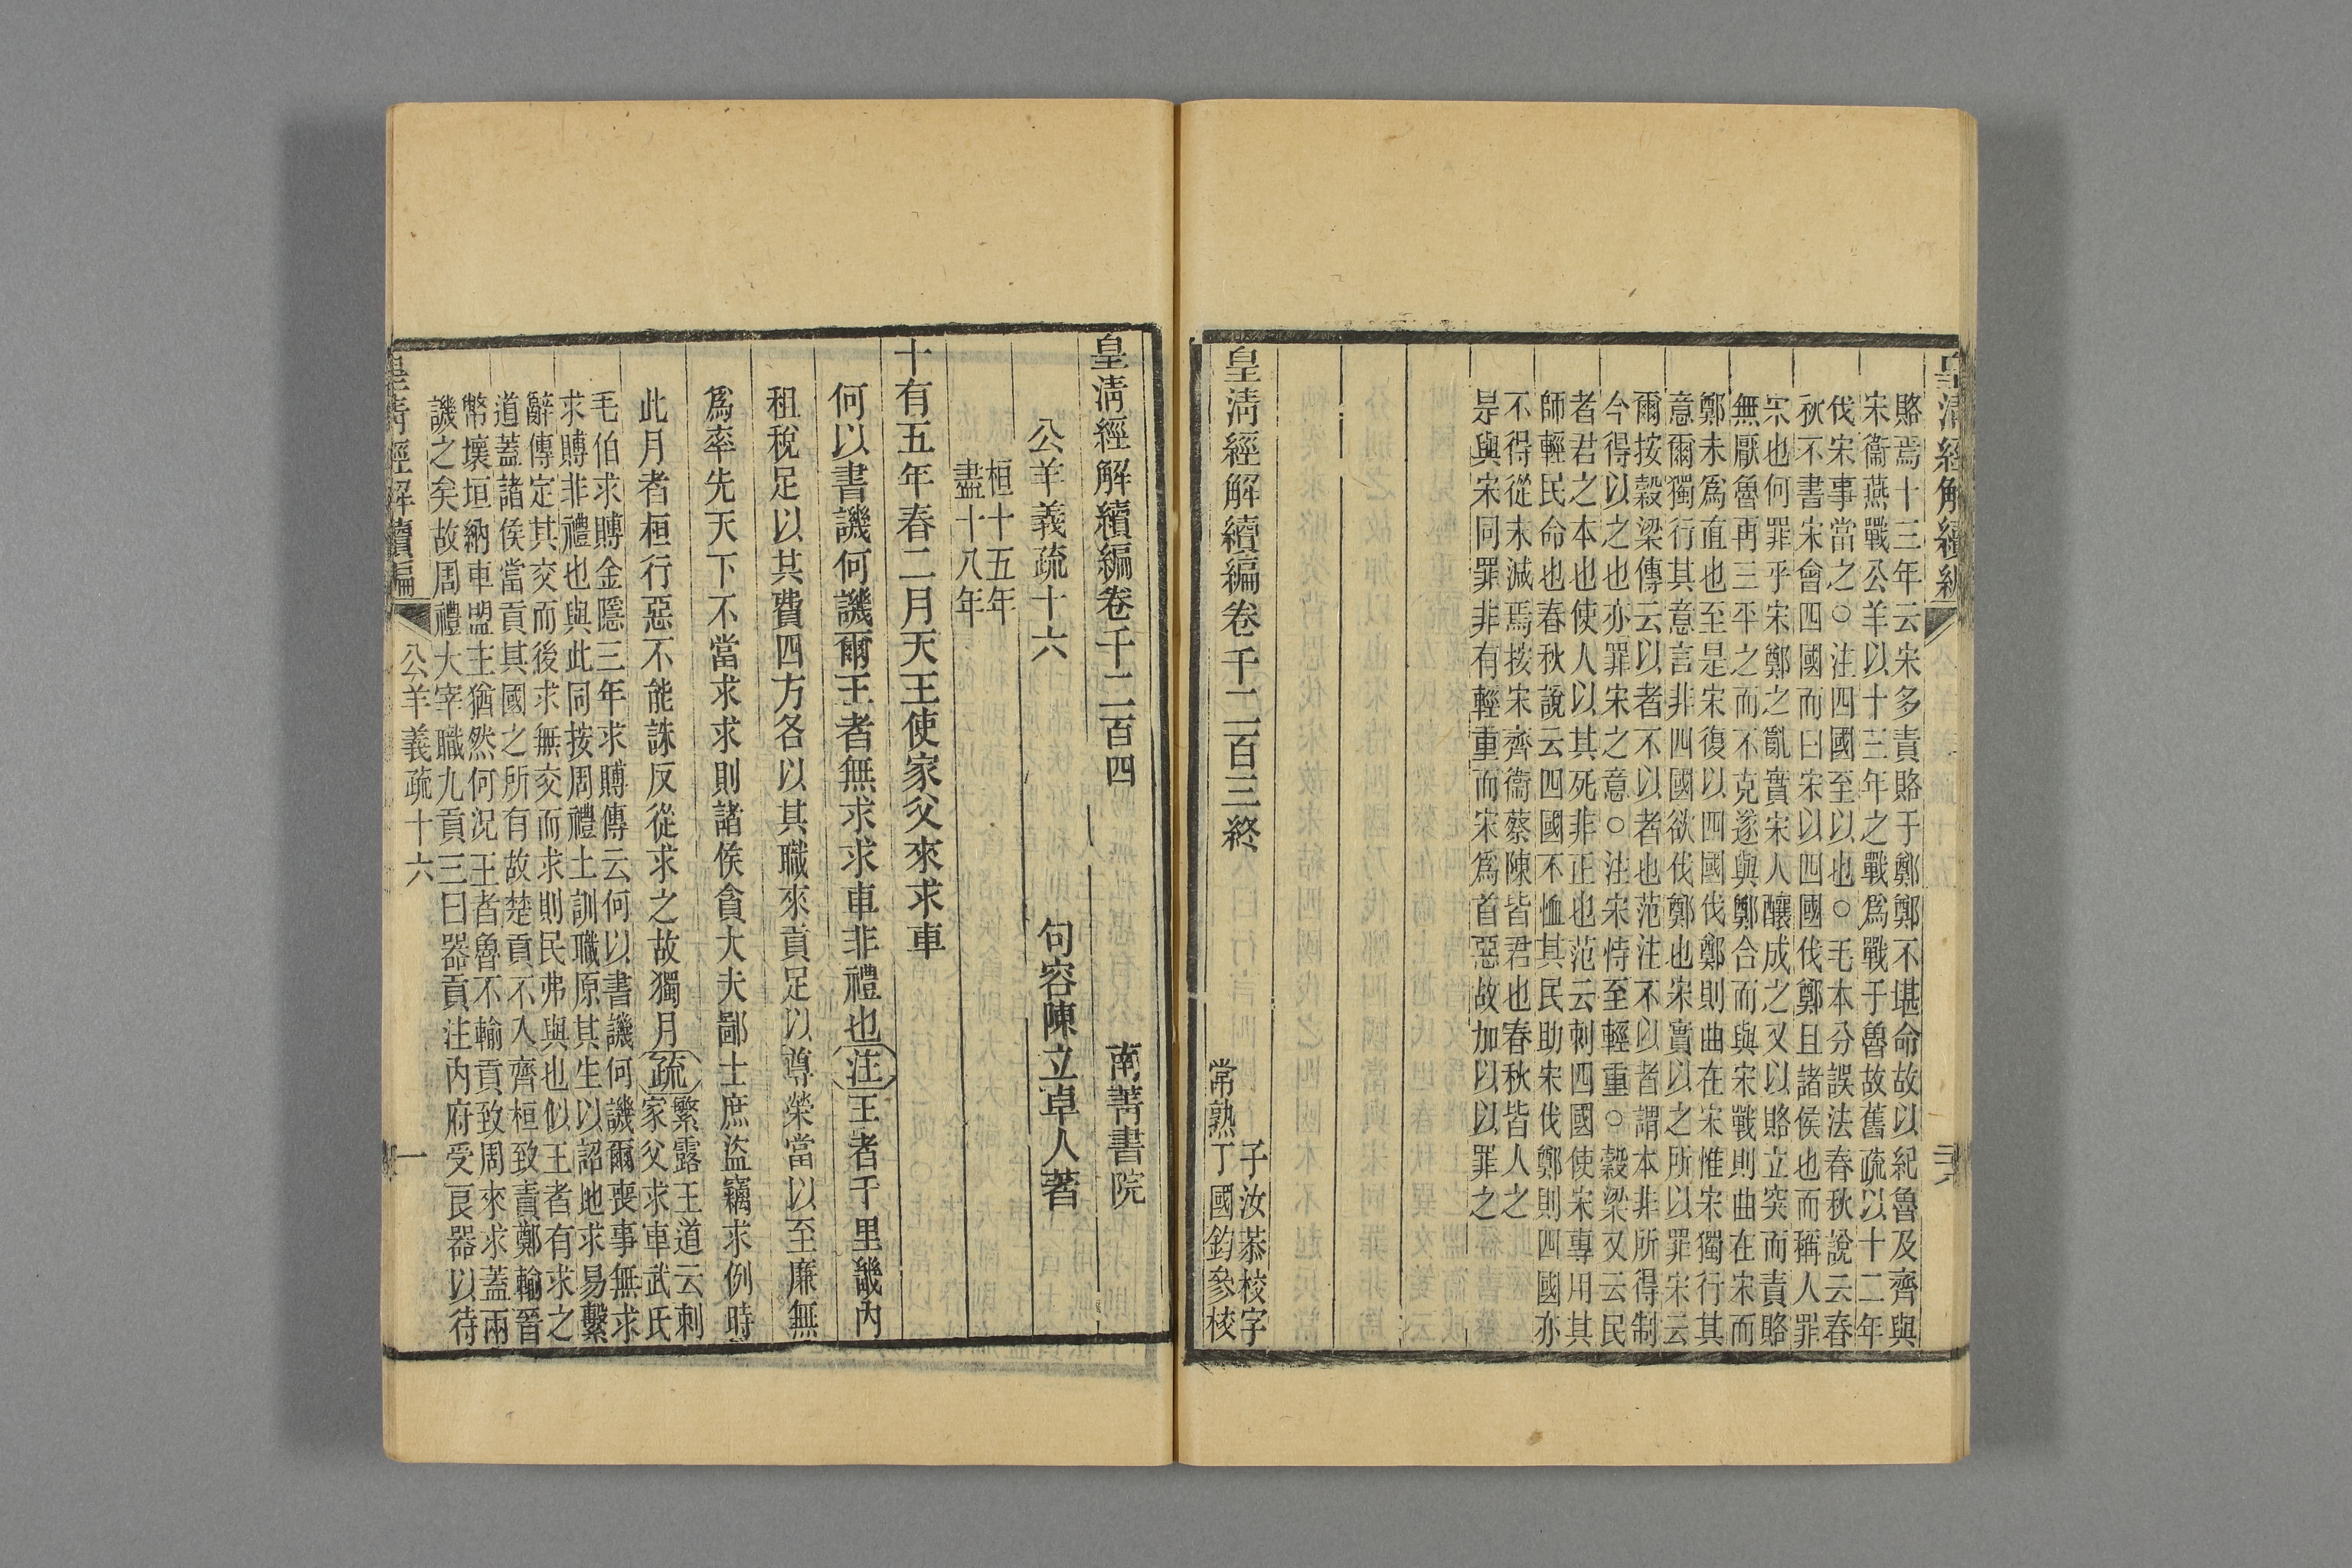 賂焉十三年云宋多責賂于鄭鄭不堪命故以紀魯及齊與
宋衞燕戰公羊以十三年之戰爲戰于魯故舊疏以十二年
伐宋事當之○注四國至以也○毛本分誤法春秋說云春
秋不書宋會四國而曰宋以四國伐鄭且諸侯也而稱人罪
宋也何罪乎宋鄭之亂實宋人釀成之又以賂立突而責賂
無厭魯再三平之而不克遂與鄭合而與宋戰則曲在宋而
鄭未爲直也至是宋復以四國伐鄭則曲在宋惟宋獨行其
意爾獨行其意言非四國欲伐鄭也宋實以之所以罪宋云
爾按穀梁傳云以者不以者也范注不以者謂本非所得制
今得以之也亦罪宋之意○注宋恃至輕重○穀梁又云民
者君之本也使人以其死非正也范云刺四國使宋專用其
師輕民命也春秋說云四國不恤其民助宋伐鄭則四國亦
不得從末減焉按宋齊衞蔡陳皆君也春秋皆人之
是與宋同罪非有輕重而宋爲首惡故加以以罪之
皇淸經解續編卷千二百三終
常熟
子汝恭校字
丁國鈞參校
皇淸經解續編卷千二百四
南菁書院
公羊義疏十六
句容陳立卓人著
桓十五年
盡十八年
十有五年春二月天王使家父來求車
何以書譏何譏爾王者無求求車非禮也注王者千里畿內
租稅足以其費四方各以其職來貢足以尊榮當以至廉無
爲率先天下不當求求則諸侯貪大夫鄙士庶盜竊求例時
此月者桓行惡不能誅反從求之故獨月疏
繁露王道云刺
家父求車武氏
毛伯求賻金隱三年求賻傳云何以書譏何譏爾喪事無求
求賻非禮也與此同按周禮土訓職原其生以詔地求易繫
辭傳定其交而後求無交而求則民弗與也似王者有求之
道蓋諸侯當貢其國之所有故楚貢不入齊桓致責鄭輸晉
幣壞垣納車盟主猶然何況王者魯不輸貢致周來求蓋兩
譏之矣故周禮大宰職九貢三曰器貢注內府受良器以待
皇淸經解續編
公羊義疏十六
一